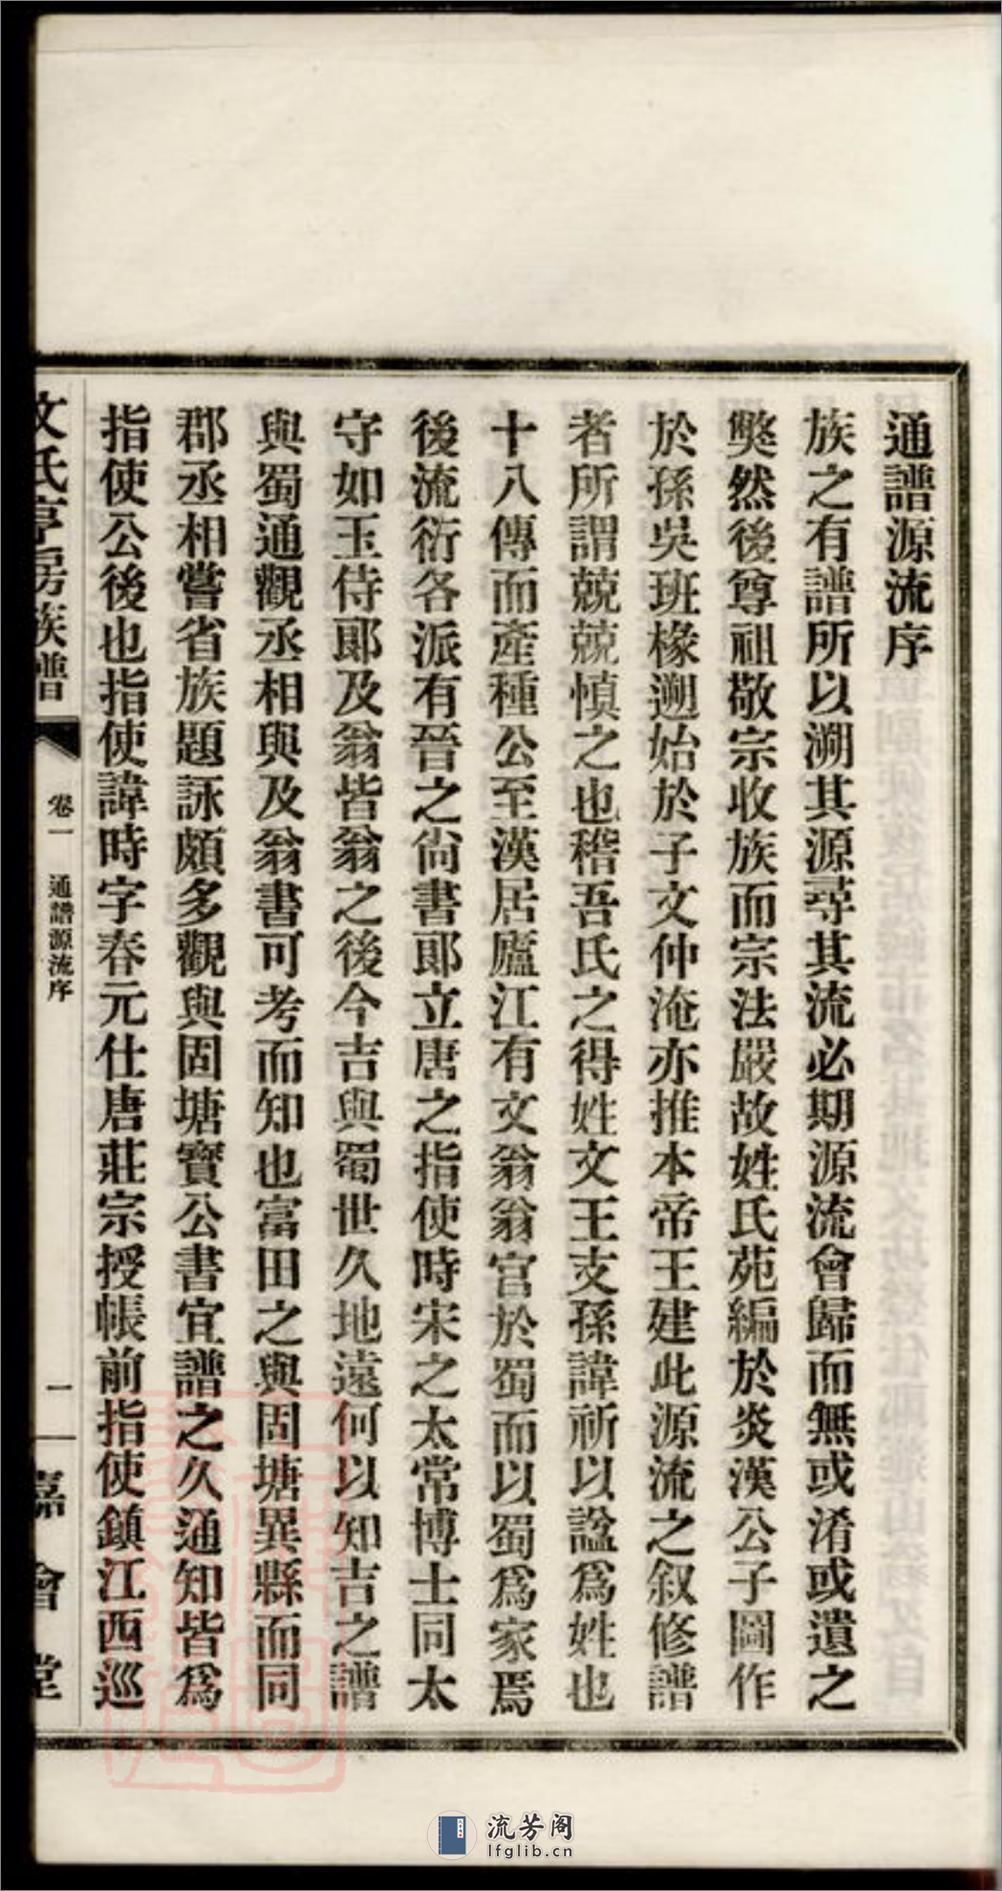 通譜源流序
族之有譜所以溯其源尋其流必期源流會歸而無或淆或遺之
獘然後尊祖敬宗收族而宗法嚴故姓氏苑編於炎漢公子圖作
於孫吳班椽遡始於子文仲淹亦推本帝王建此源流之叙修譜
者所謂兢兢慎之也稽吾氏之得姓文王支孫諱祈以諡爲姓也
十八傳而產種公至漢居廬江有文翁翁官於蜀而以蜀爲家焉
後流衍各派有晉之尙書郎立唐之指使時宋之太常博士同太
守如玉侍郎及翁皆翁之後今吉與蜀世久地遠何以知吉之譜
與蜀通觀丞相與及翁書可考而知也富田之與固塘異縣而同
郡丞相嘗省族題詠頗多觀與固塘寶公書宜譜之久通知皆爲
指使公後也指使諱時字春元仕唐莊宗授帳前指使鎮江西巡
文氏亨房族譜
卷一
通譜源流序
一
嘉會堂
流芳阁
lfglib.cn